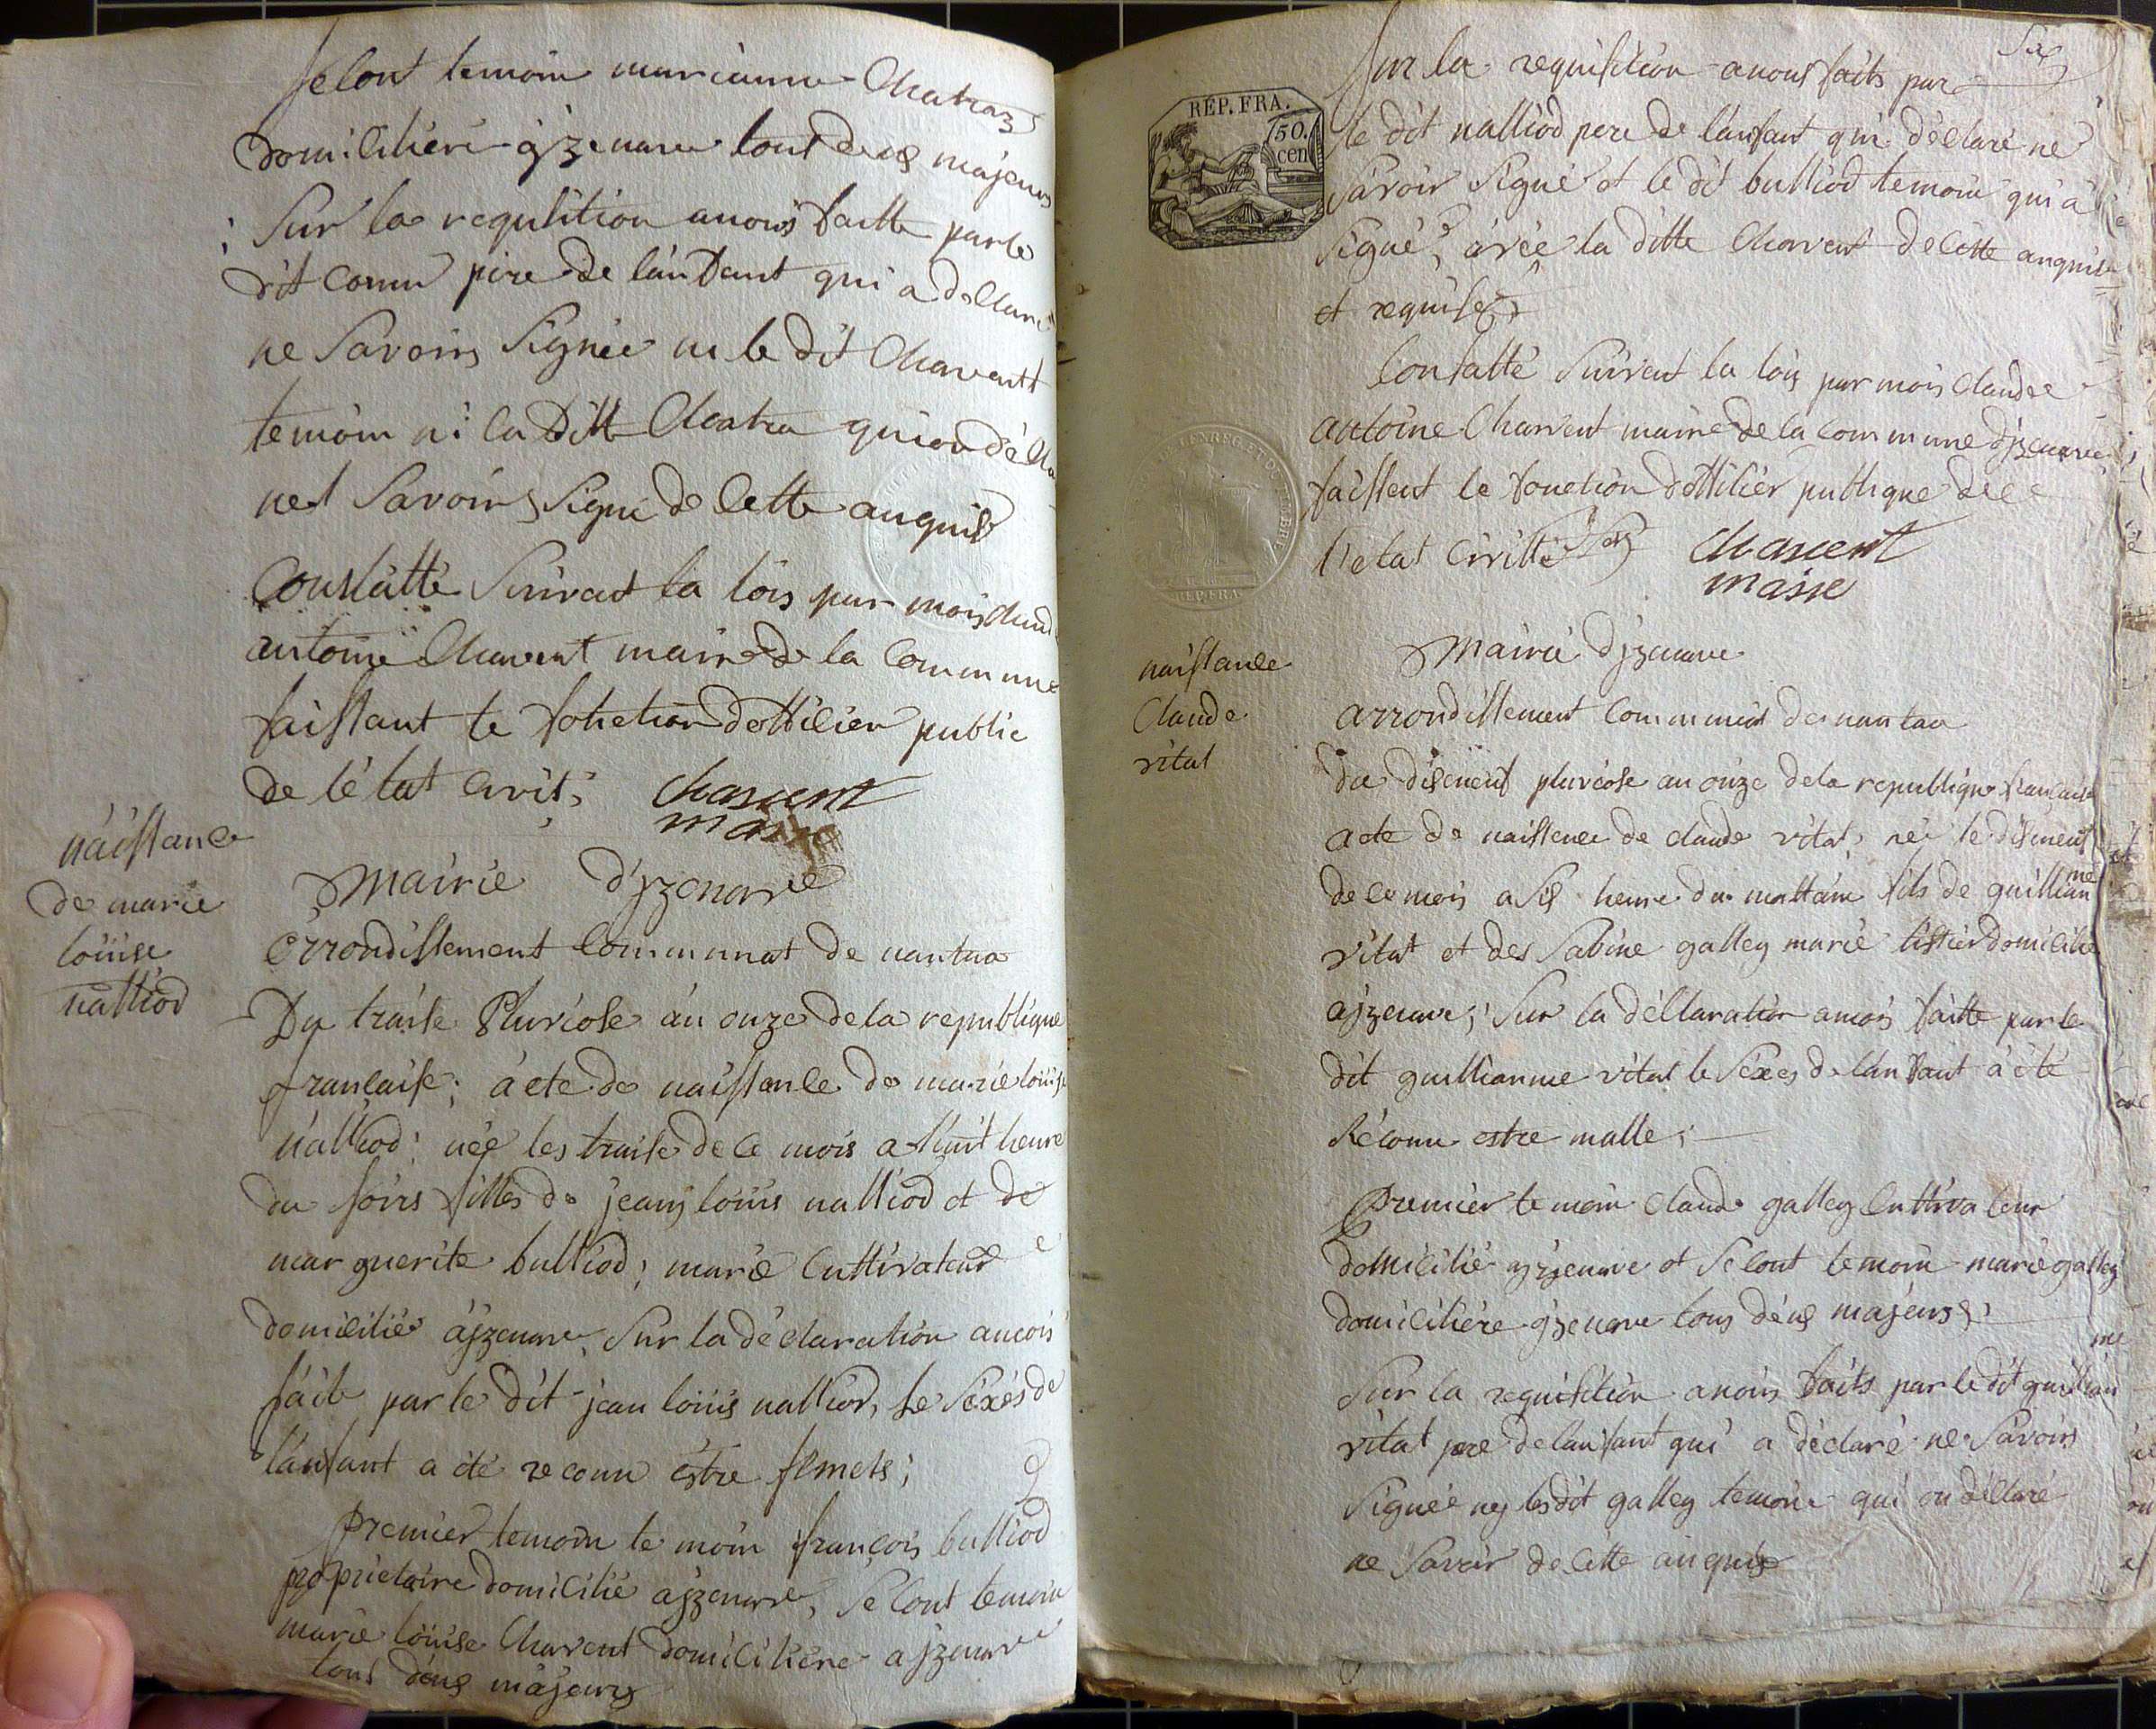 selont temoin marianne Chatraz
domiciliére a jzenave tout deus majeurs
; Sur la requisition anois faitte par le
dit comu pere de lanfant qui a déclaré
ne Savoirs Signée ni le dit Charvent
temoin ni la ditte Chatra qui on décla
net Savoirs Signé de cette anquis
Constatté Suivent la lois par mois claud
antoine Charvent maire de la Commune
faissant le fonction dofficier public
de létat Civit;
charvent
maire
naissance
de marie
loiiise
nalliod
Mairie d'jzenave
Arrondissement Communat de nantua
Du traise Pluviose an onze de la republique
française; acte de naissance de marie louise
nalliod; née les traise de ce mois a huit heure
du soirs filles de jean louis nalliod et de
marguerite bulliod; marié Cultivateur
domicilié ajzenave, Sur la déclaration anois
faite par le dit jean louis nalliod, le Séxés de
lanfant a été reconu éstre femels;
premier temoin te moin françois bulliod
propriétaire domicilié ajzenave, Selont temoin
marie loiiise Charvent domicilière ajzenave
tous deus majeurs
Six
RÉP. FRA.
50.
cen
Sur la requisition anous faits par
le dit nalliod pere de lanfant qui déclaré ne
Savoir Signé et le dit bulliod temoin qui a
Signé, avée la ditte Charvent de cette anquise
et requise
Constatté Suivent la lois par mois Claude
antoine Charvent maire de la Commune djzenave
faissent le fonction dofficier publique de
l'etat Civille
charvent
maire
naissance
Claude
vitat
Mairie djzenave
arrondissement Communat de nantua
du diseneuf pluviose an onze de la republique française
acte de naissence de claude vitat, née le diseneuf
de ce mois a Sis heure du mattain fils de guillianme
vitat et des Sabine galley marié tissier domicilié
ajzenave; Sur la déllaration anois faitte par le
dit guillianme vitat le Séxes de lanfant a été
Réconu estre malle;
Premier temoin Claude galley Cultivateur
domicilié ajzenave et Selont temoin marie galley
domicilière ajzenave tous deus majeurs;
Sur la requisition anois faits par le dit guillianme
vitat pere de lanfant qui a déclaré ne Savoirs
Signée ney les dit galley temoin qui on déllaré
ne Savoir de cette anquise